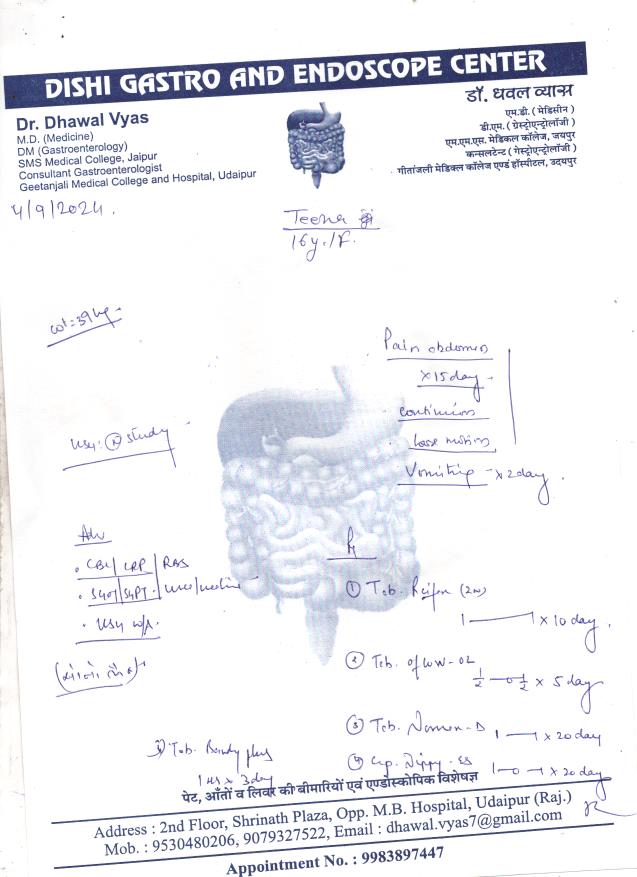 DISHI GASTRO AND ENDOSCOPE CENTER
Dr. Dhawal Vyas
M.D. (Medicine)
DM (Gastroenterology)
SMS Medical College, Jaipur
Consultant Gastroenterologist
Geetanjali Medical College and Hospital, Udaipur
डॉ. धवल व्यास
एम.डी. ( मेडिसीन )
डी.एम. ( गेस्ट्रोएन्ट्रोलॉजी )
एम.एम.एस. मेडिकल कॉलेज, जयपुर
कन्सलटेन्ट ( गेस्ट्रोएन्ट्रोलॉजी )
गीतांजली मेडिकल कॉलेज एण्ड हॉस्पीटल, उदयपुर
4/9/2024.
Teena
16y./F.
wt=39kg
Pain abdomen
x15day
continuous
loose motions
Vomiting - x2day.
USG: (N) study
Adv
• CBC/CRP/RBS
• SGOT/SGPT
• USG W/A.
Rx
① Tab. (200)
1 — x 10 day.
② Tab. OZ
½ — ½ x 5 day
③ Tab. D
1 — 1 x 20 day
④ Cap.
1—0—1 x 20 day
Tab. Bandy plus
1 HS x 3 day
पेट, आँतों व लिवर की बीमारियों एवं एण्डोस्कोपिक विशेषज्ञ
Address : 2nd Floor, Shrinath Plaza, Opp. M.B. Hospital, Udaipur (Raj.)
Mob. : 9530480206, 9079327522, Email : dhawal.vyas7@gmail.com
Appointment No. : 9983897447